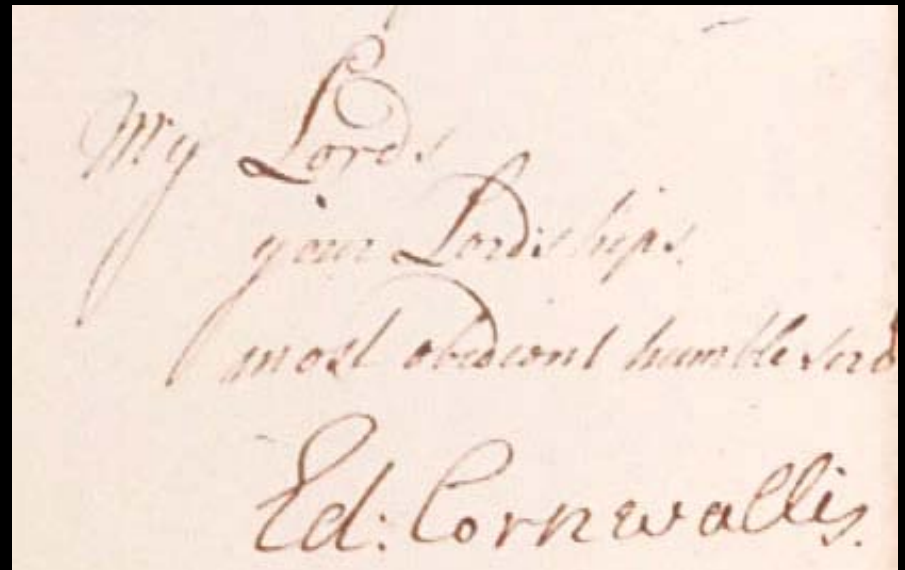 My Lords
your Lordships
most obedient humble serv
Ed: Cornwallis.